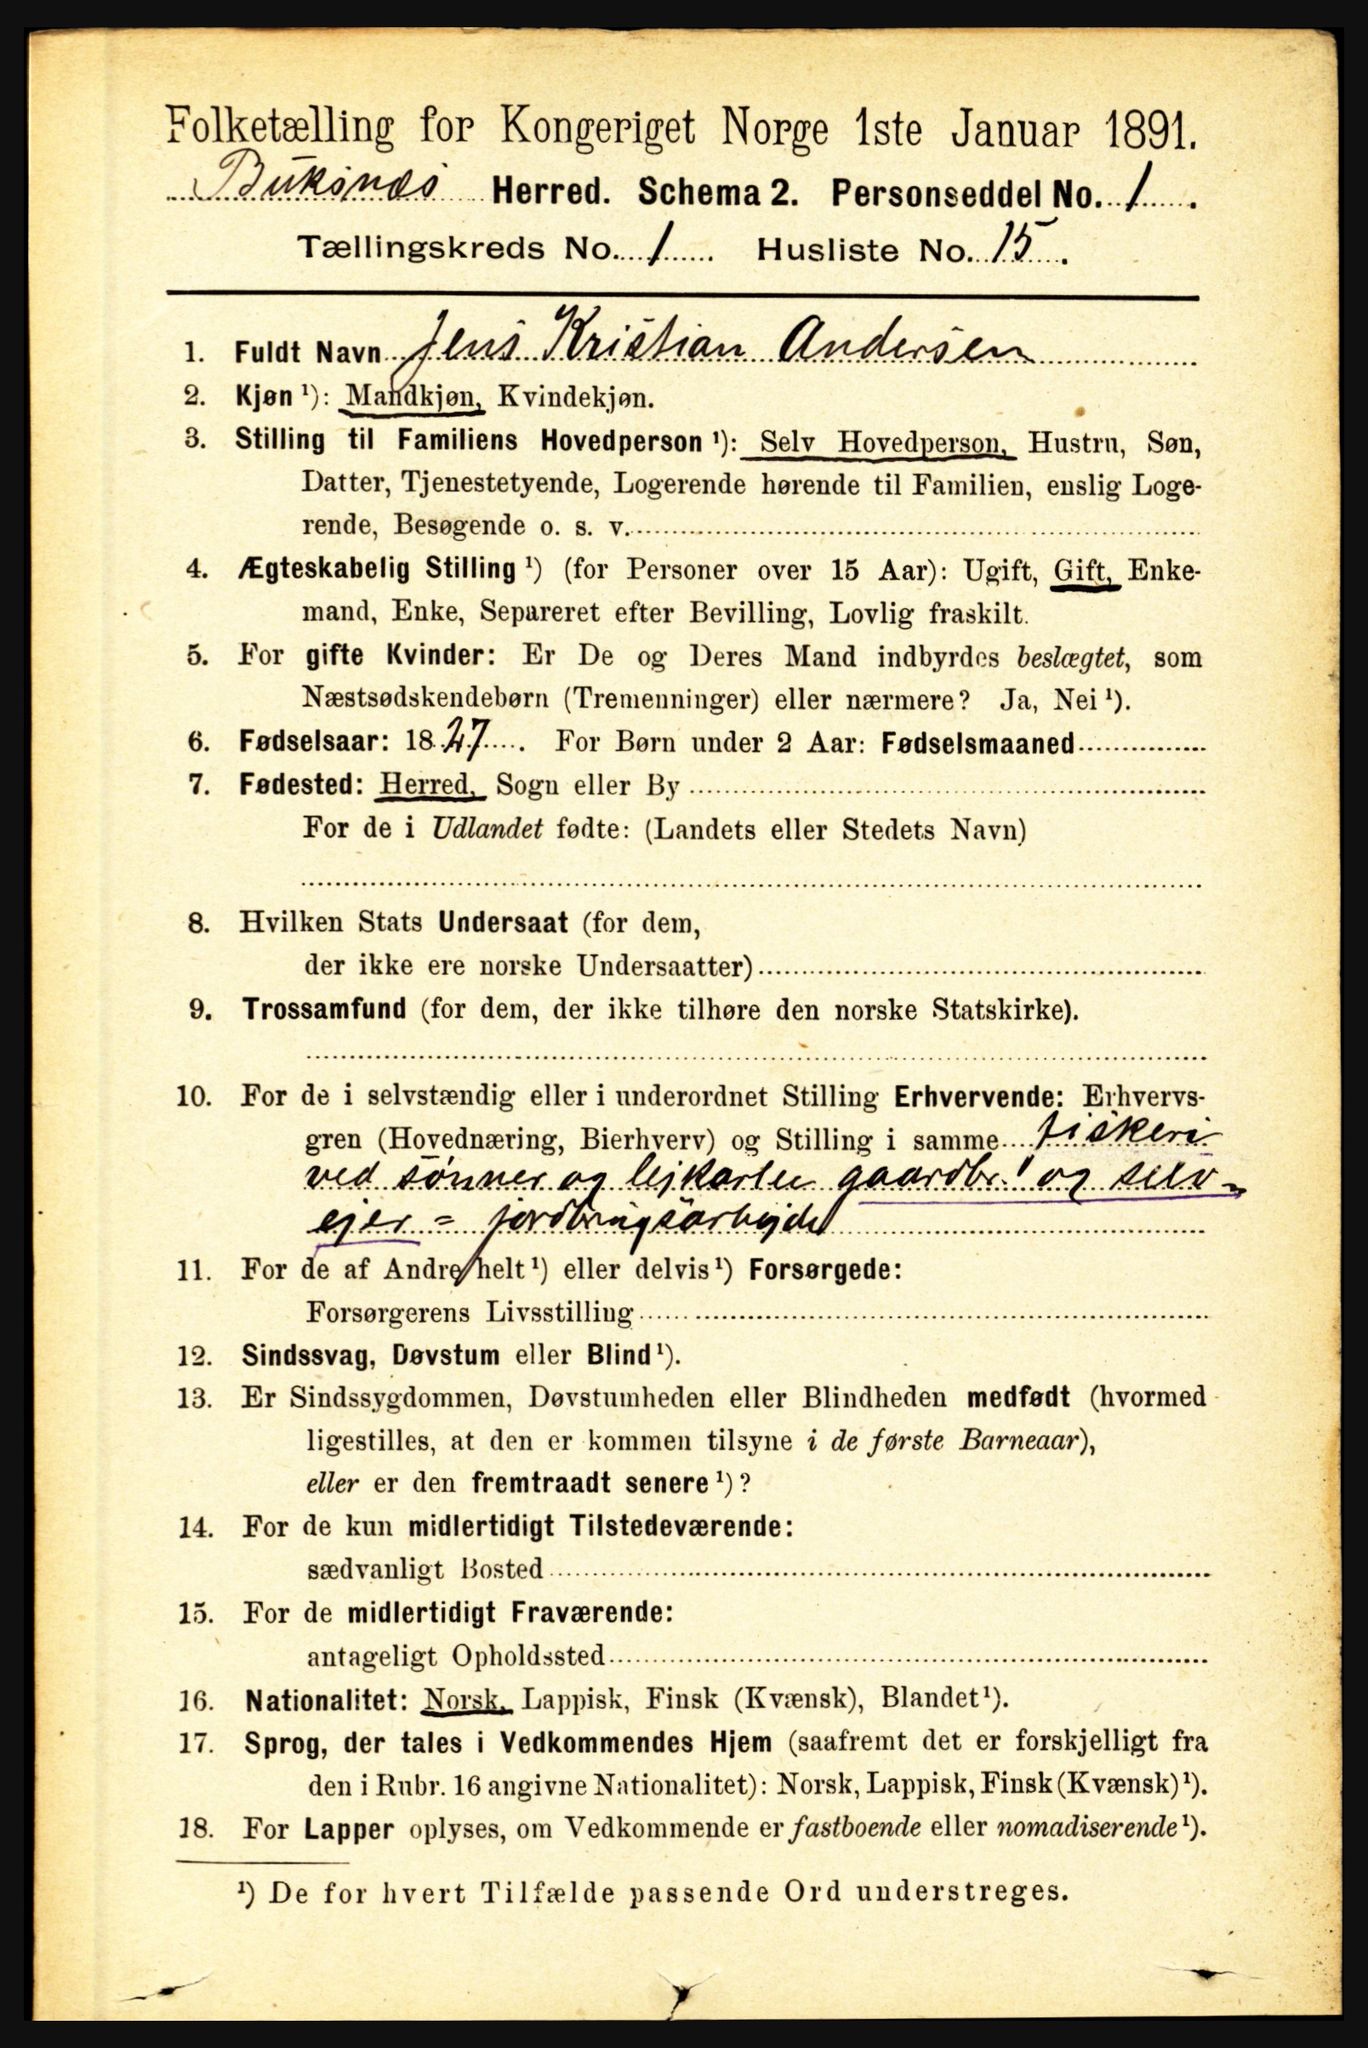 Folketælling for Kongeriget Norge 1ste Januar 1891.
Buksnæs Herred. Schema 2. Personseddel No. 1.
Tællingskreds No. 1. Husliste No. 15.
1. Fuldt Navn Jens Kristian Andersen
2. Kjøn ¹): Mandkjøn, Kvindekjøn.
3. Stilling til Familiens Hovedperson ¹): Selv Hovedperson, Hustru, Søn,
Datter, Tjenestetyende, Logerende hørende til Familien, enslig Loge-
rende, Besøgende o. s. v.
4. Ægteskabelig Stilling ¹) (for Personer over 15 Aar): Ugift, Gift, Enke-
mand, Enke, Separeret efter Bevilling, Lovlig fraskilt.
5. For gifte Kvinder: Er De og Deres Mand indbyrdes beslægtet, som
Næstsødskendebørn (Tremenninger) eller nærmere? Ja, Nei ¹).
6. Fødselsaar: 1827. For Børn under 2 Aar: Fødselsmaaned
7. Fødested: Herred, Sogn eller By
For de i Udlandet fødte: (Landets eller Stedets Navn)
8. Hvilken Stats Undersaat (for dem,
der ikke ere norske Undersaatter)
9. Trossamfund (for dem, der ikke tilhøre den norske Statskirke).
10. For de i selvstændig eller i underordnet Stilling Erhvervende: Erhvervs-
gren (Hovednæring, Bierhverv) og Stilling i samme fiskeri
ved sønner og lejkarle gaardbr. og selv-
ejer = jordbrugsarbejde
11. For de af Andre helt ¹) eller delvis ¹) Forsørgede:
Forsørgerens Livsstilling
12. Sindssvag, Døvstum eller Blind ¹).
13. Er Sindssygdommen, Døvstumheden eller Blindheden medfødt (hvormed
ligestilles, at den er kommen tilsyne i de første Barneaar),
eller er den fremtraadt senere ¹)?
14. For de kun midlertidigt Tilstedeværende:
sædvanligt Bosted
15. For de midlertidigt Fraværende:
antageligt Opholdssted
16. Nationalitet: Norsk, Lappisk, Finsk (Kvænsk), Blandet ¹).
17. Sprog, der tales i Vedkommendes Hjem (saafremt det er forskjelligt fra
den i Rubr. 16 angivne Nationalitet): Norsk, Lappisk, Finsk (Kvænsk) ¹).
18. For Lapper oplyses, om Vedkommende er fastboende eller nomadiserende ¹).
¹) De for hvert Tilfælde passende Ord understreges.